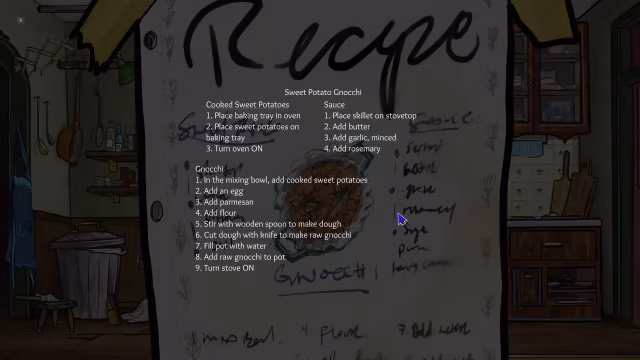 Recipe
Sweet Potato Gnocchi
Cooked Sweet Potatoes
1. Place baking tray in oven
2. Place sweet potatoes on
baking tray
3. Turn oven ON
Sauce
1. Place skillet on stovetop
2. Add butter
3. Add garlic, minced
4. Add rosemary
Gnocchi
1. In the mixing bowl, add cooked sweet potatoes
2. Add an egg
3. Add parmesan
4. Add flour
5. Stir with wooden spoon to make dough
6. Cut dough with knife to make raw gnocchi
7. Fill pot with water
8. Add raw gnocchi to pot
9. Turn stove ON
GNOCCHI
4 Flour
7 Add water